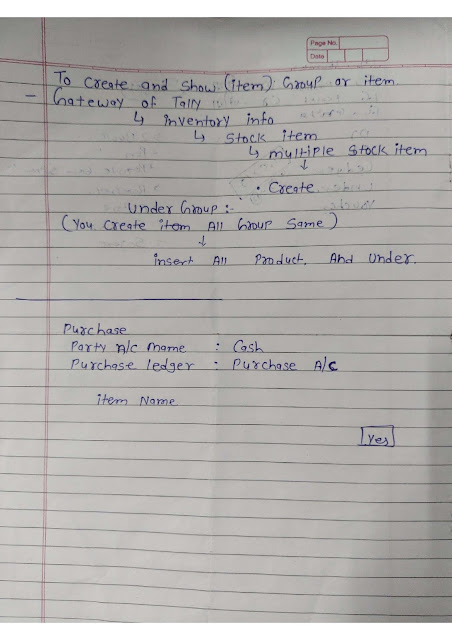 Page No.
Date
To Create and Show (item) Group or item
– Gateway of Tally
↳ inventory info
↳ Stock item
↳ multiple stock item
↓
• Create
Under Group :-
(You Create item All Group Same)
↓
insert All Product. And Under.
Purchase
Party A/c name : Cash
Purchase ledger : Purchase A/c
item Name
Yes